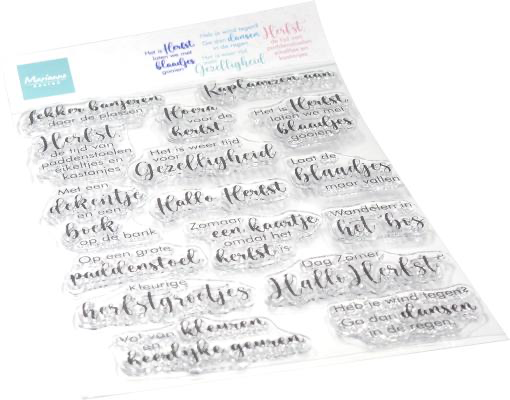 Het is Herfst
laten we met
blaadjes
gooien!
Heb je wind tegen?
Ga dan dansen
in de regen
Het is weer tijd
voor
Gezelligheid
Herfst,
de tijd van
paddenstoelen
eikeltjes en
kastanjes
Marianne
DESIGN
Lekker banjeren
door de plassen
Kaplaarzen aan
Hoera
voor de
herfst
Het is Herfst,
laten we met
blaadjes
gooien!
Herfst,
de tijd van
paddenstoelen
eikeltjes en
kastanjes
Het is weer tijd
voor
Gezelligheid
Laat de
blaadjes
maar vallen
Met een
dekentje
en een
boek
op de bank
Hallo Herfst
Zomaar
een kaartje
omdat het
herfst is
Wandelen in
het bos
Op een grote
paddenstoel
Dag Zomer,
Hallo Herfst
Kleurige
herfstgroetjes
Heb je wind tegen?
Ga dan dansen
in de regen
Vol van kleuren
en
heerlijke geuren